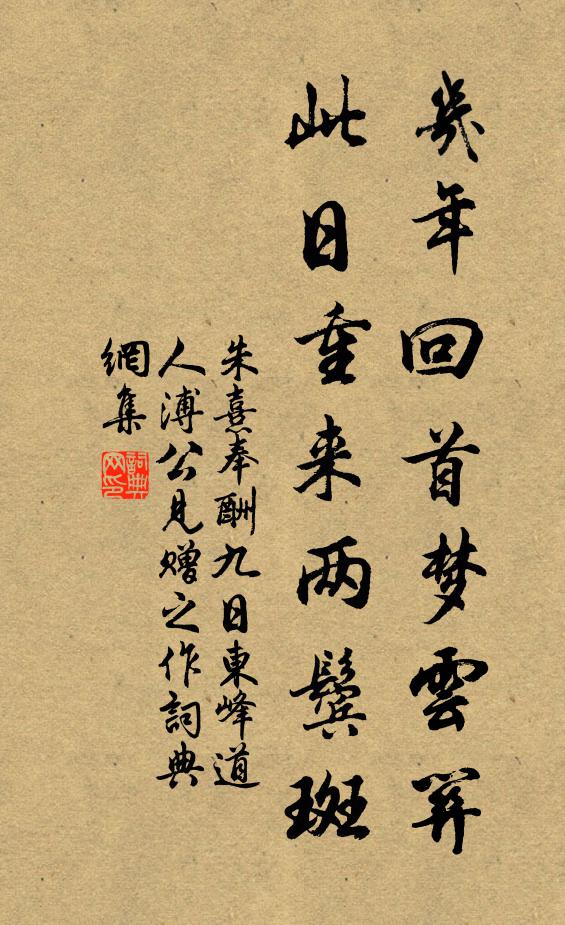 幾年回首梦雲關
此日重来两鬓斑
朱熹奉酬九日東峰道
人溥公見贈之作詞典
網集
詞典网印